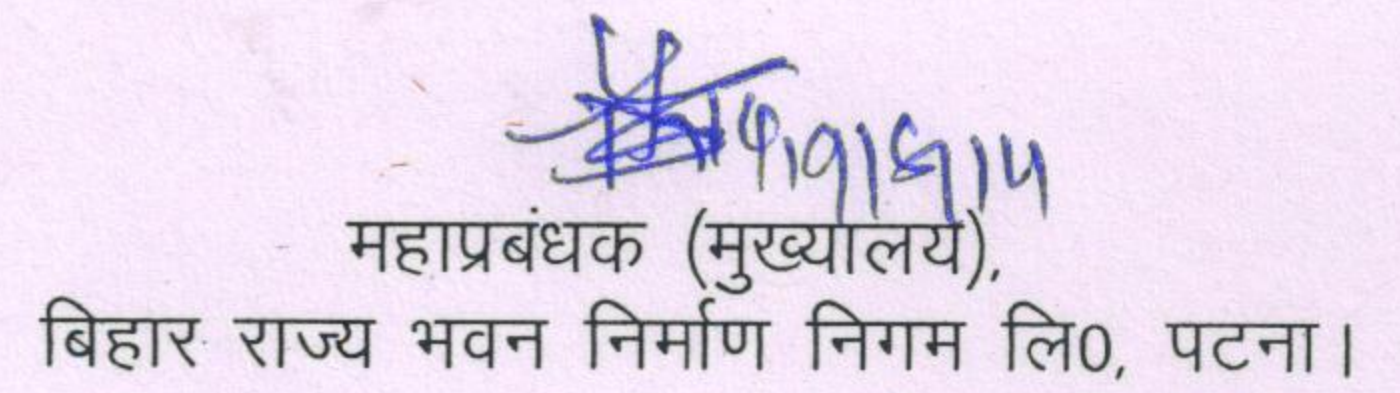 महाप्रबंधक (मुख्यालय),
बिहार राज्य भवन निर्माण निगम लि0, पटना।